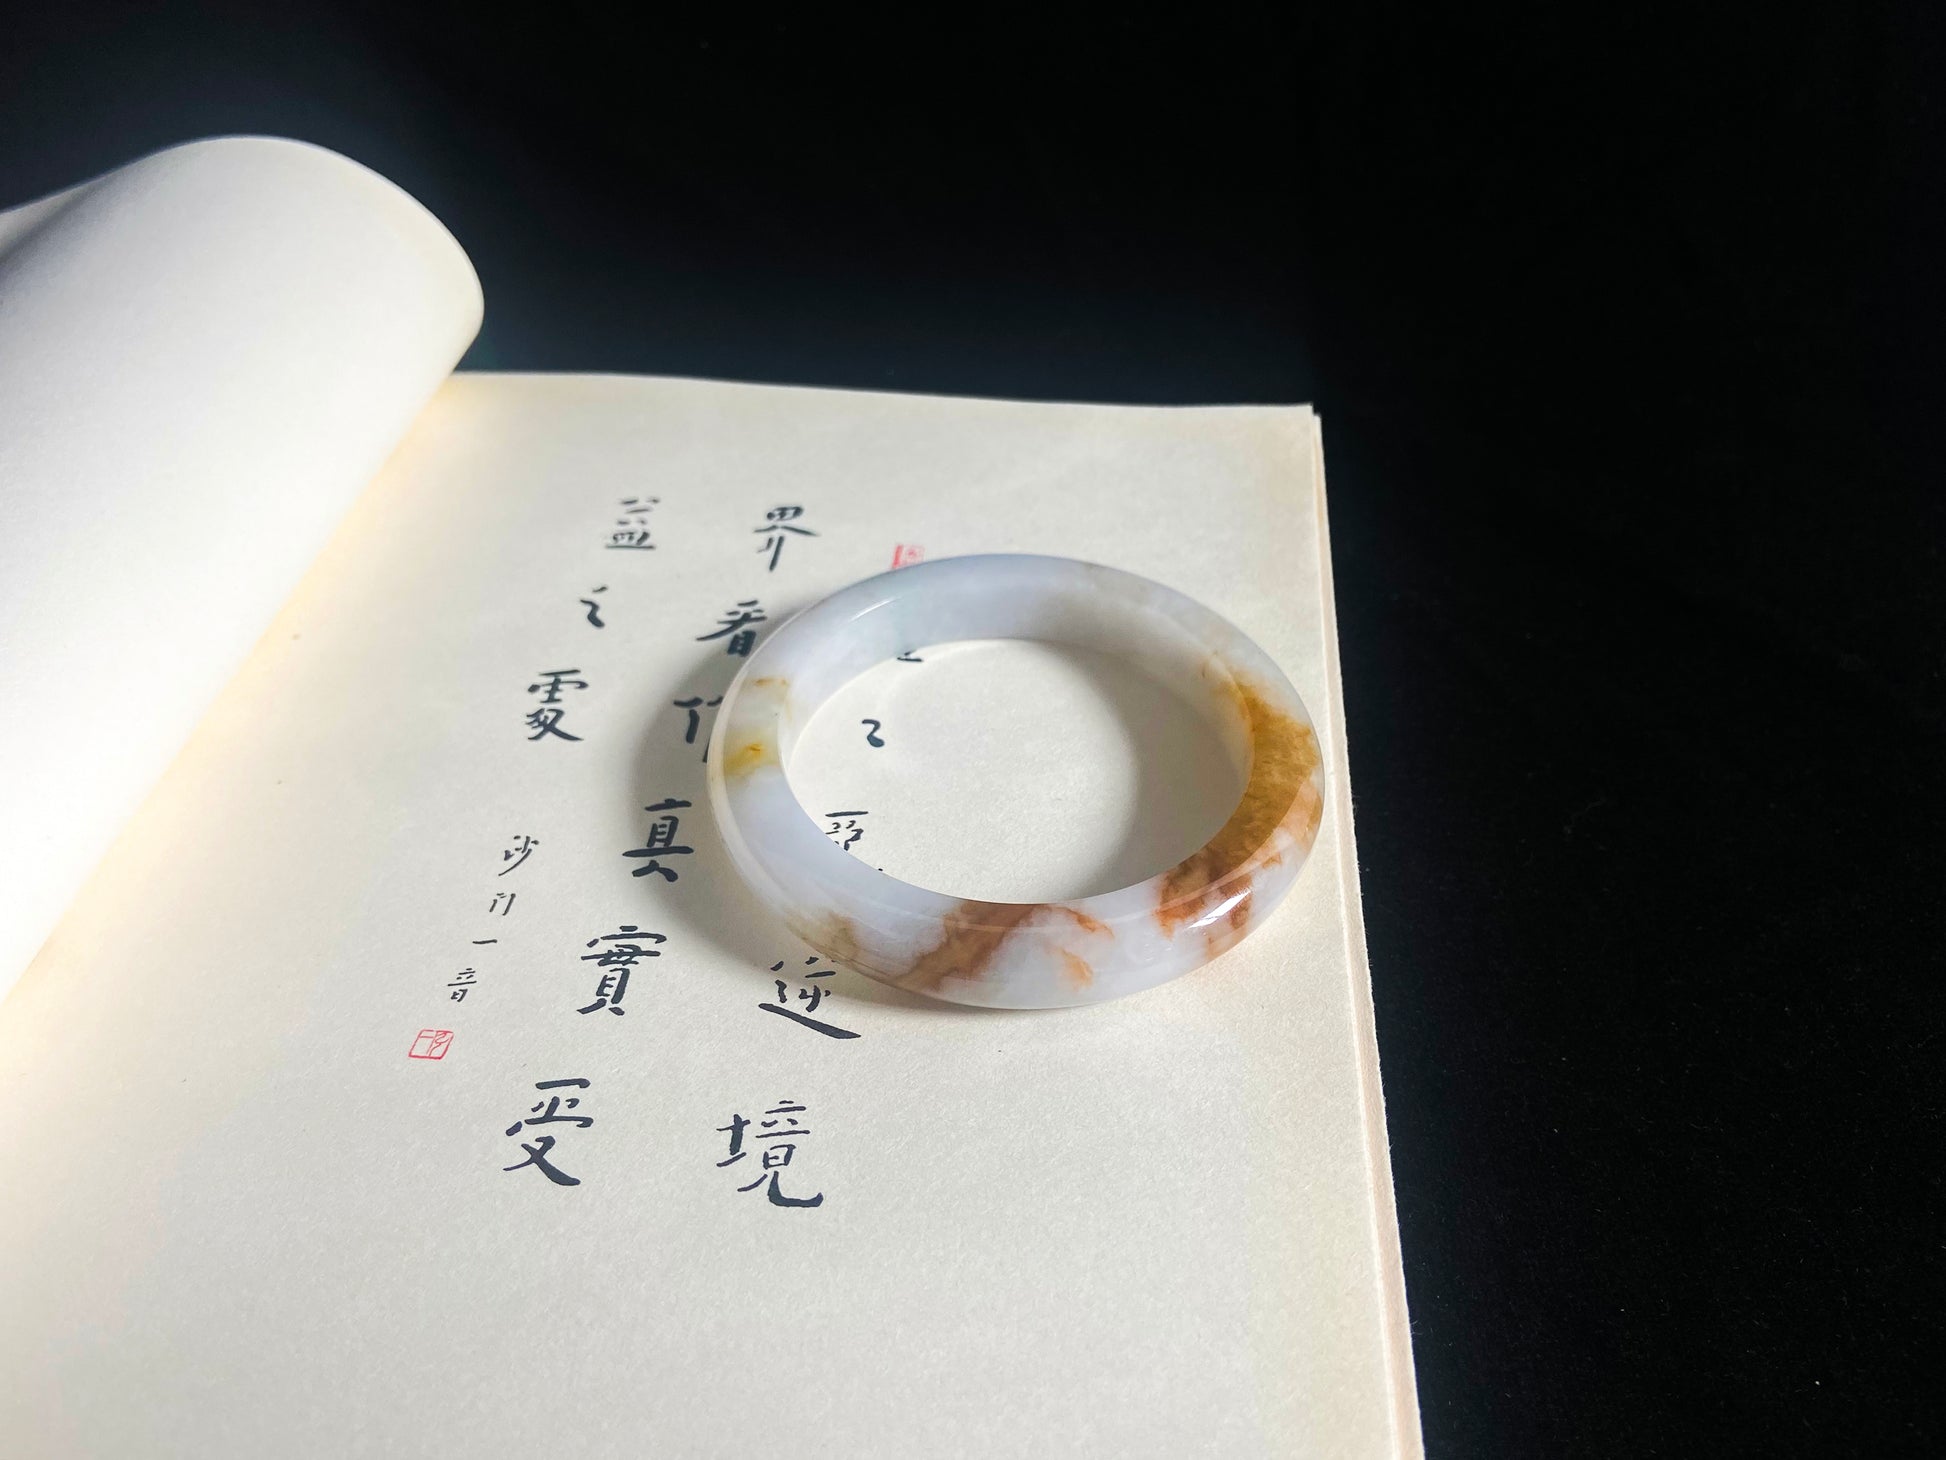 逆境
界看作真實受
益之處
沙門一音